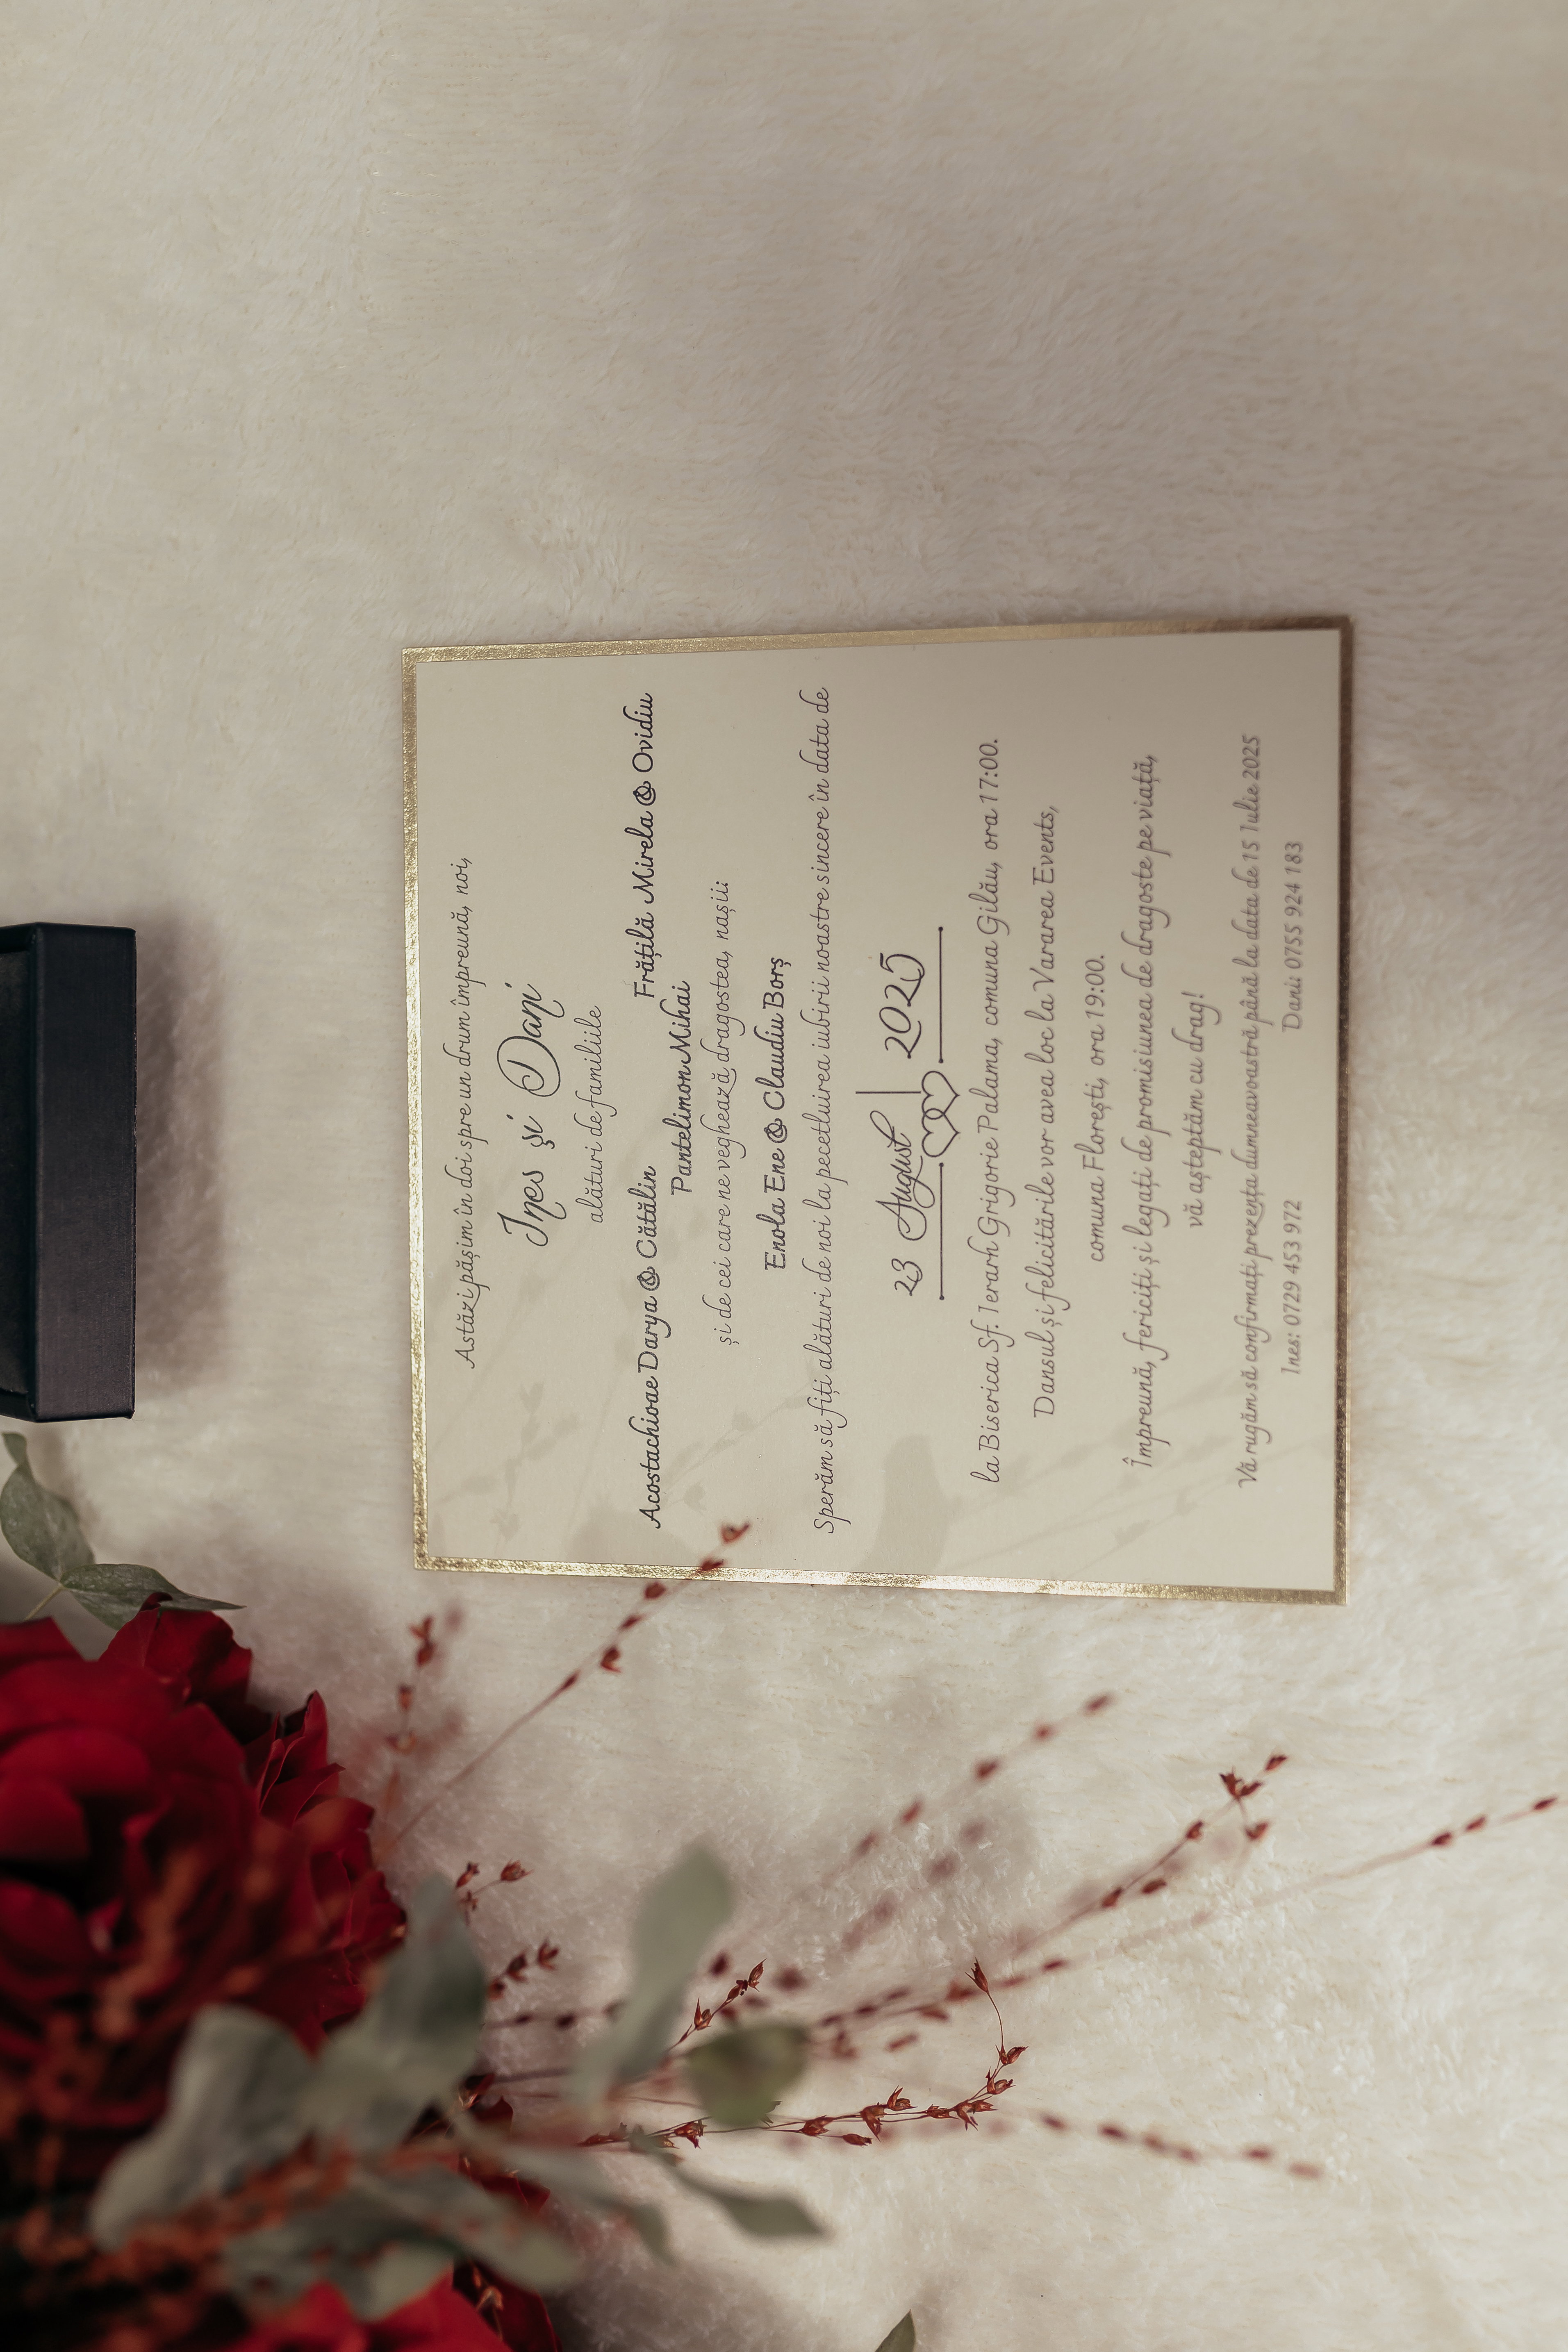 Astăzi pășim în doi spre un drum împreună, noi,
Ines și Dani
alături de familiile
Acostachioae Darya & Cătălin Frățilă Mirela & Ovidiu
Pantelimon Mihai
și de cei care ne veghează dragostea, nașii:
Enola Ene & Claudiu Borș
Sperăm să fiți alături de noi la pecetluirea iubirii noastre sincere în data de
23 August 2025
la Biserica Sf. Ierarh Grigorie Palama, comuna Gilău, ora 17:00.
Dansul și felicitările vor avea loc la Vararea Events,
comuna Florești, ora 19:00.
Împreună, fericiți și legați de promisiunea de dragoste pe viață,
vă așteptăm cu drag!
Vă rugăm să confirmați prezența dumneavoastră până la data de 15 Iulie 2025
Ines: 0729 453 972 Dani: 0755 924 183